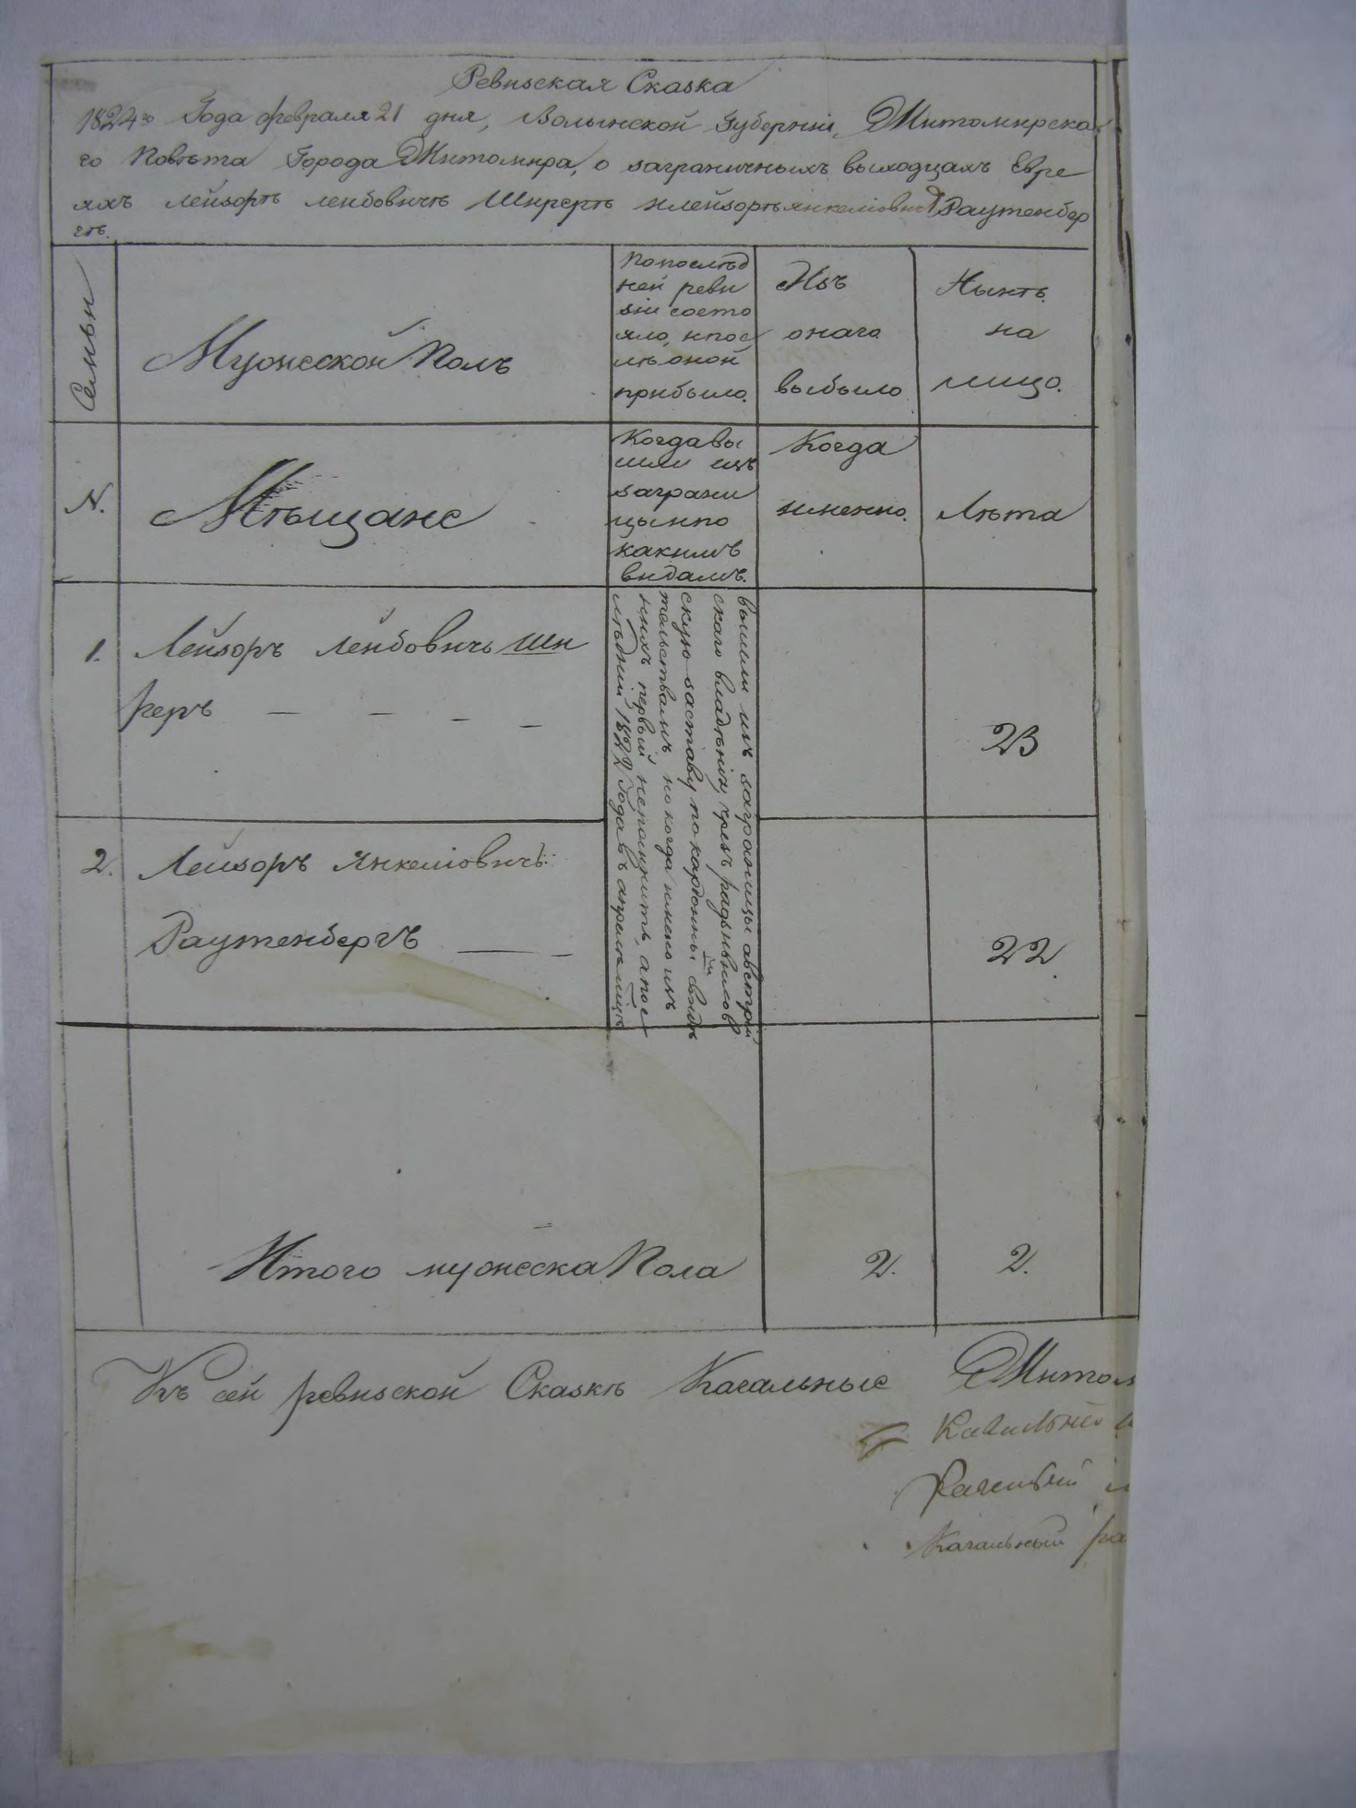 Ревизская Сказка
1824го Года февраля 21 дня, Волынской Губерніи, Житомирска
го Повѣта Города Житомира, о заграничныхъ выходцахъ Евре
яхъ Лейзорѣ Лейбовичѣ Ширерѣ и Лейзорѣ Янкеліовичѣ Раутенбер
гѣ.
Семьи
Мужеской Полъ
По послѣд
ней реви
зіи состо
яло, и пос
лѣ оной
прибыло.
Изъ
онаго
выбыло
Нынѣ
на
лицо.
N.
Мѣщане
Когда вы
шли изъ
заграни
цы и по
какимъ
видамъ.
Когда
именно.
Лѣта
1. Лейзоръ Лейбовичь Ши
реръ — — — —
вышли изъ заграницы австрій
скаго владѣнія, чрезъ радзивилов
скую заставу по кардоннымъ свидѣ
тельствамъ но когда именно изъ
нихъ первый непомнитъ, а пос
лѣдній 1822 Года въ апрѣлѣ мцѣ
23
2. Лейзоръ Янкеліовичъ
Раутенбергъ — —
22
Итого мужеска Пола 2. 2.
Къ сей ревизской Сказкѣ Кагальные Житом
Кагальный
Кагальный
Кагальный ра